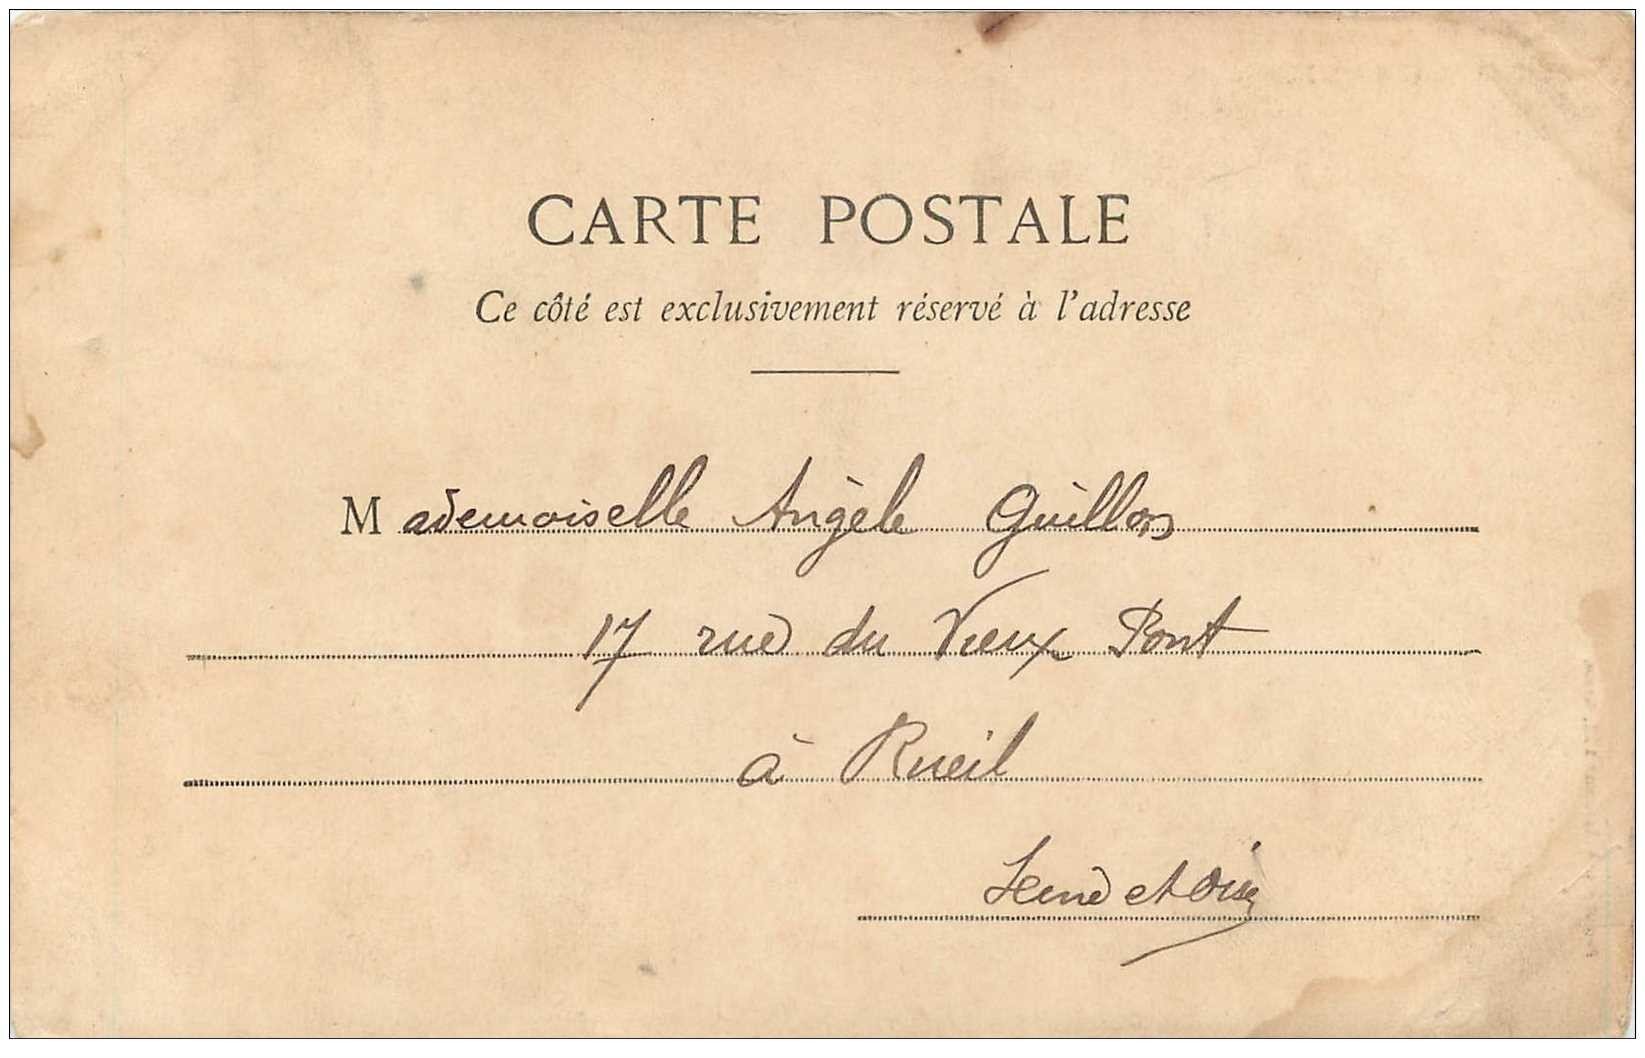 CARTE POSTALE
Ce côté est exclusivement réservé à l'adresse
Mademoiselle Angèle Guillon
17 rue du Vieux Pont
à Rueil
Seine et Oise